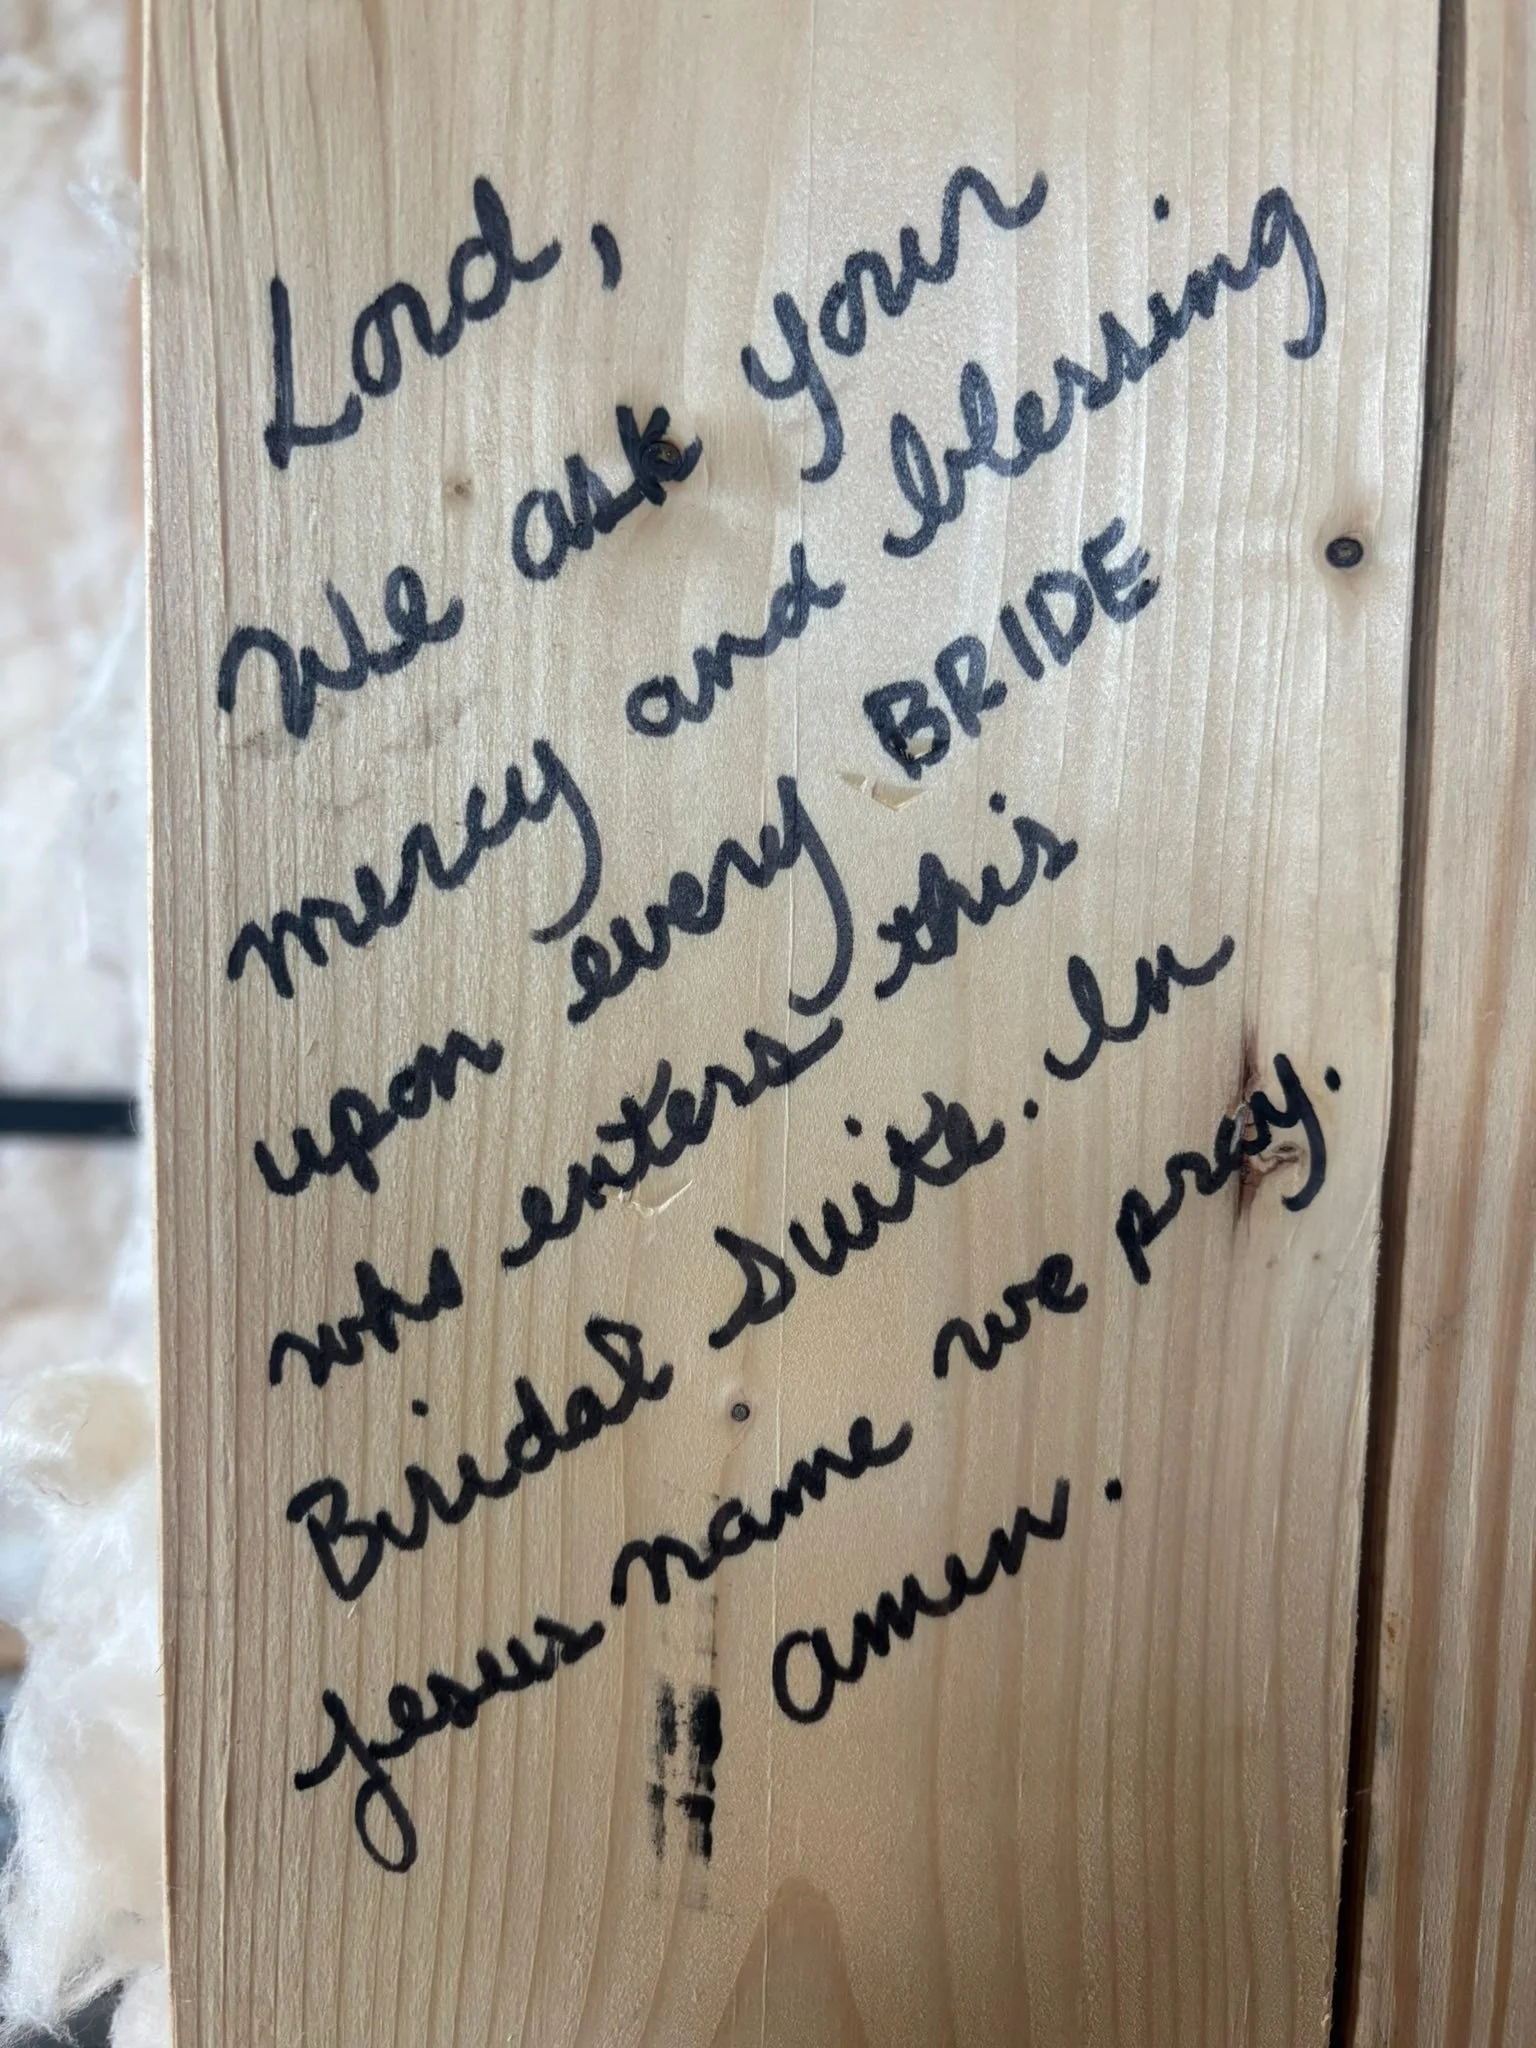 Lord,
We ask your
mercy and blessing
upon every BRIDE
who enters this
Bridal Suite. In
Jesus name we pray.
Amen.